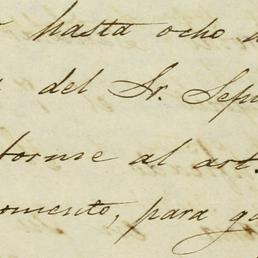 hasta ocho
del Sr. Sepu
forme al art.
omento, para